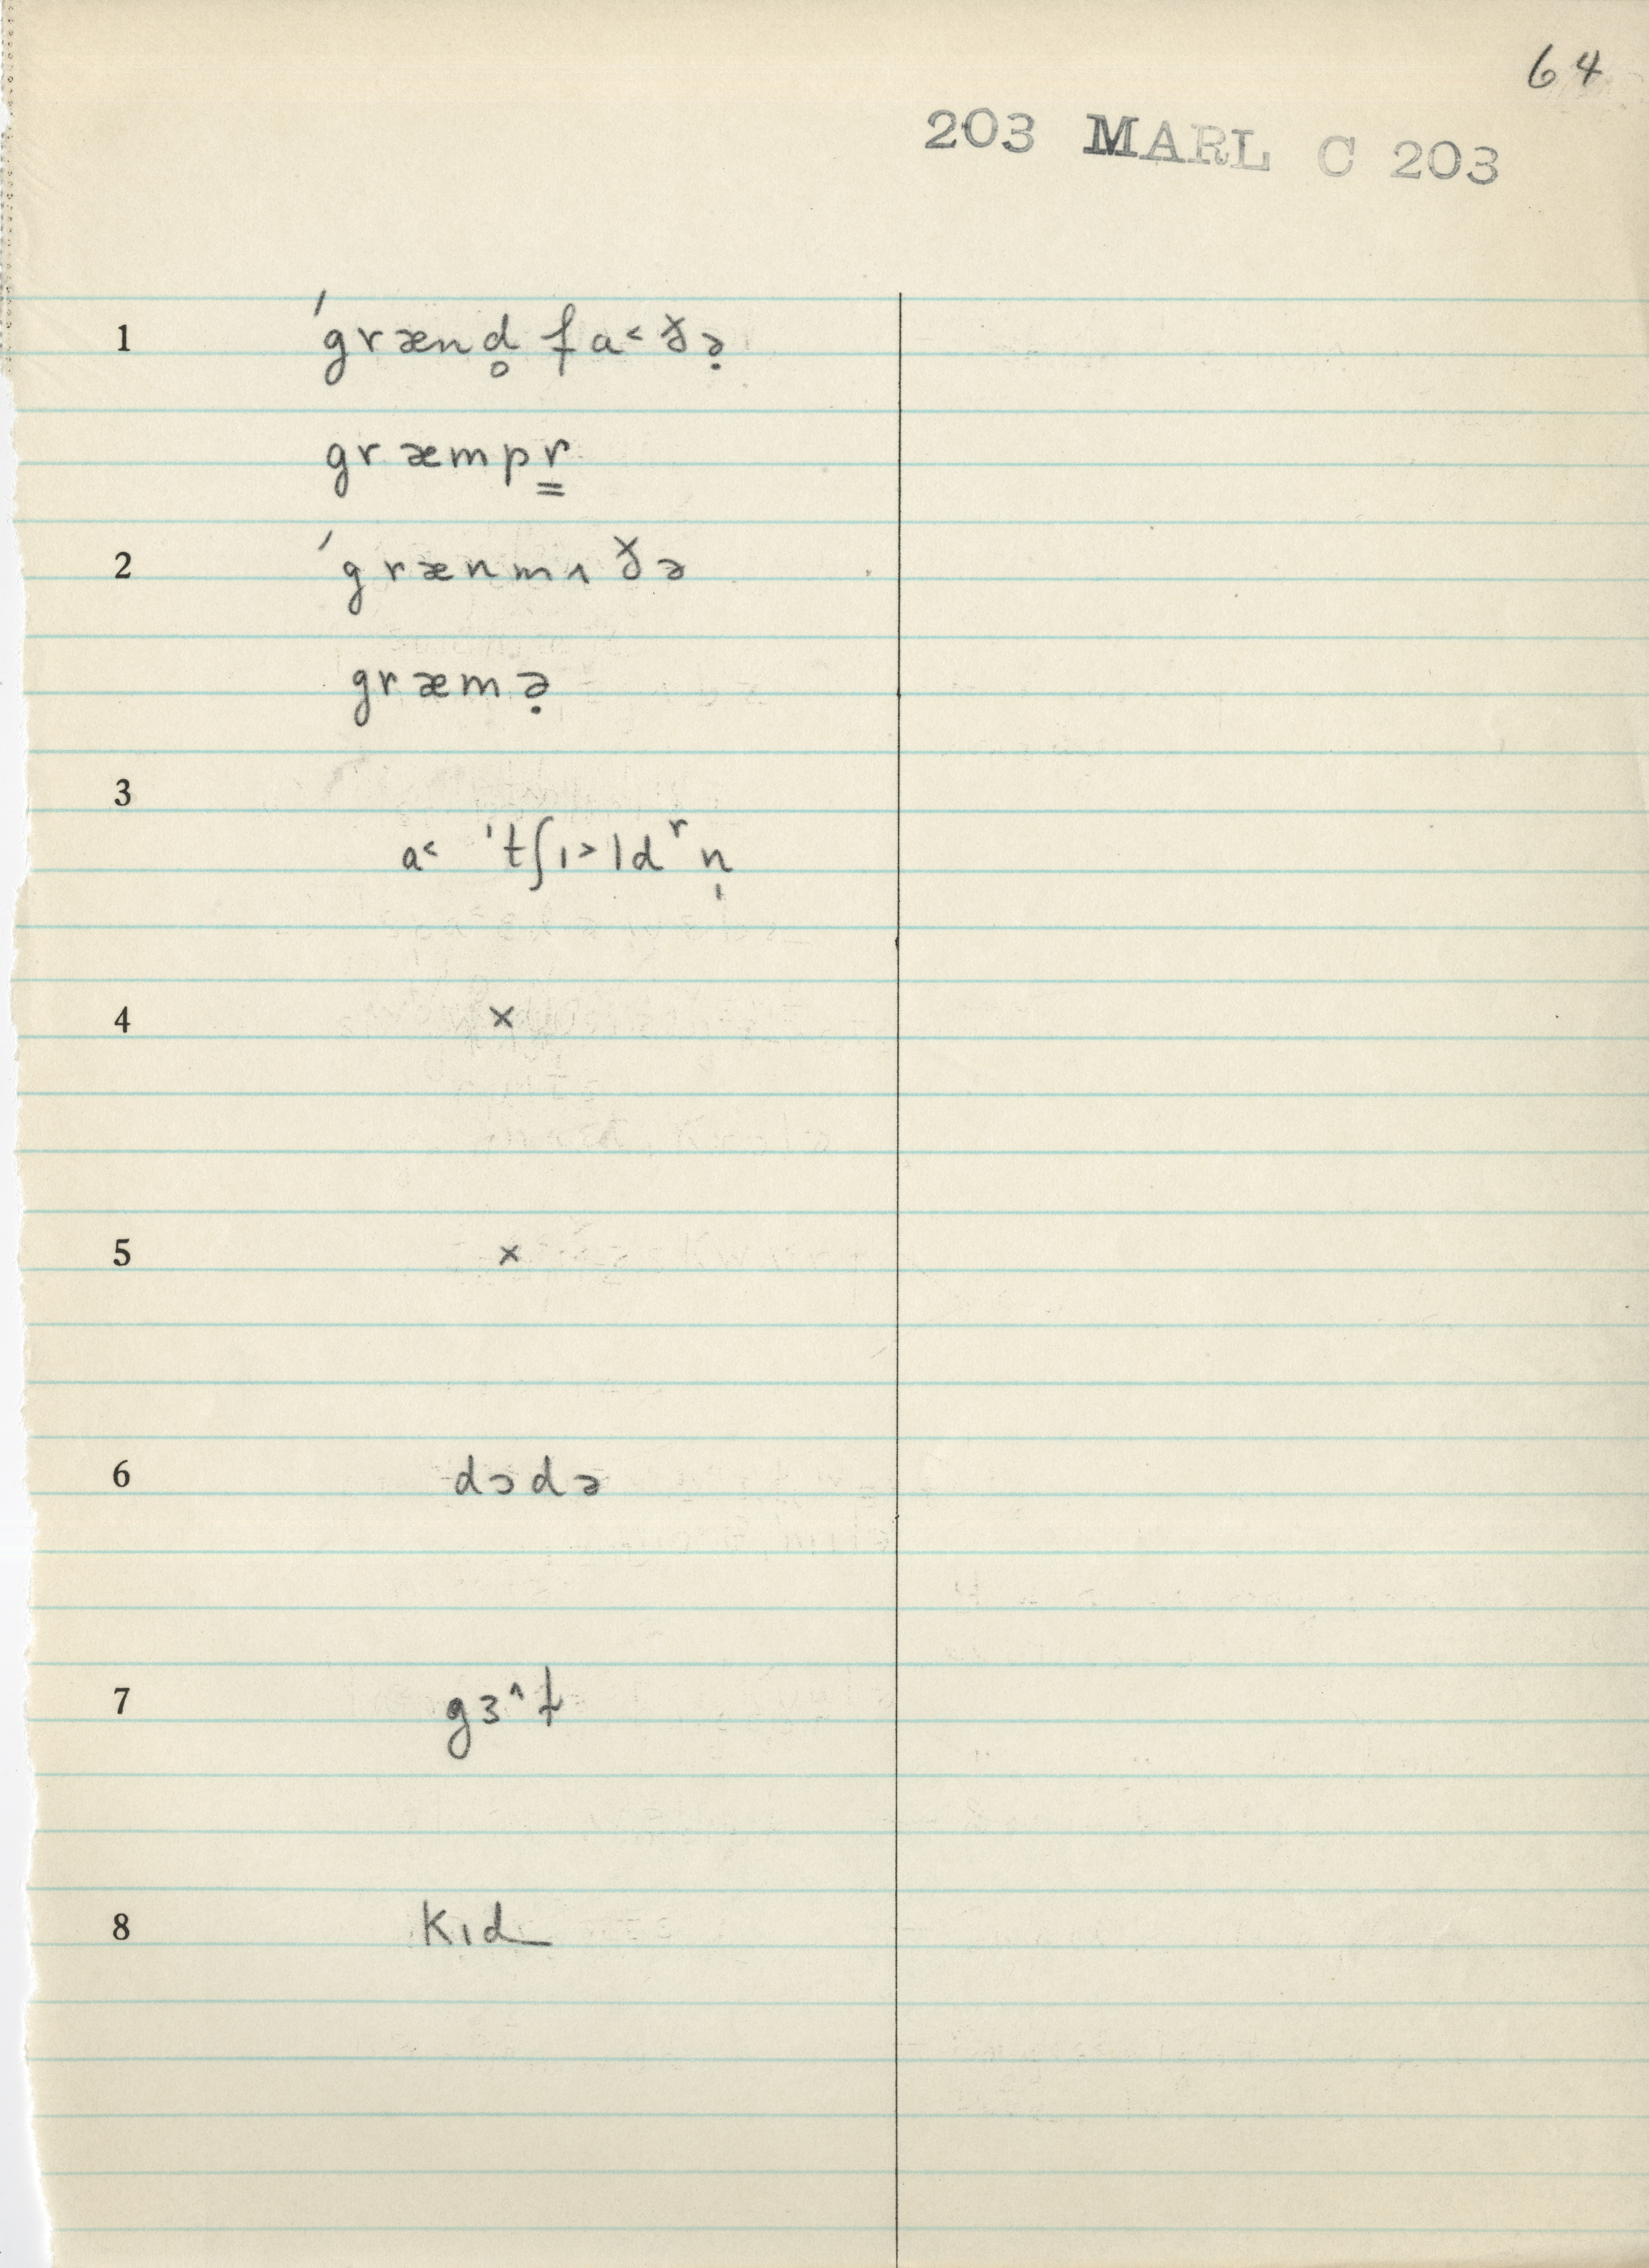 64
203 MARL C 203
1 ˈgrænd̥ fa˂ðə̣
græmpr̳
2 ˈgrænmʌðə
græmə̣
3
a˂ ˈtʃɪ˃ldʳn̩
4 ×
5 ×
6 dɔdə
7 gɜ^ɫ
8 kɪd